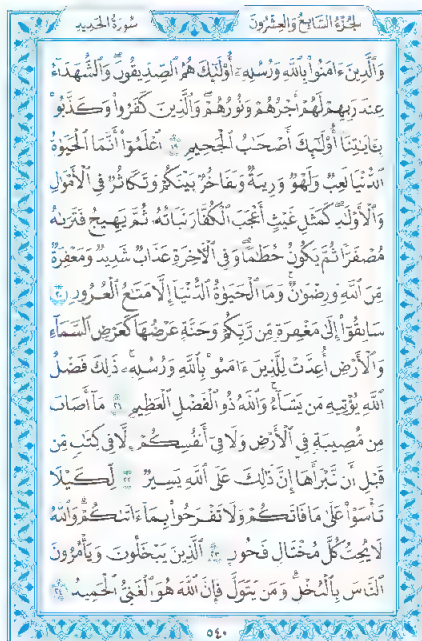 الجزء السابع والعشرون سورة الحديد
وَالَّذِينَ ءَامَنُوا۟ بِٱللَّهِ وَرُسُلِهِۦٓ أُو۟لَٰٓئِكَ هُمُ ٱلصِّدِّيقُونَ ۖ وَٱلشُّهَدَآءُ
عِندَ رَبِّهِمْ لَهُمْ أَجْرُهُمْ وَنُورُهُمْ ۖ وَٱلَّذِينَ كَفَرُوا۟ وَكَذَّبُوا۟
بِـَٔايَٰتِنَآ أُو۟لَٰٓئِكَ أَصْحَٰبُ ٱلْجَحِيمِ ١٩ ٱعْلَمُوٓا۟ أَنَّمَا ٱلْحَيَوٰةُ
ٱلدُّنْيَا لَعِبٌ وَلَهْوٌ وَزِينَةٌ وَتَفَاخُرٌۢ بَيْنَكُمْ وَتَكَاثُرٌ فِى ٱلْأَمْوَٰلِ
وَٱلْأَوْلَٰدِ ۖ كَمَثَلِ غَيْثٍ أَعْجَبَ ٱلْكُفَّارَ نَبَاتُهُۥ ثُمَّ يَهِيجُ فَتَرَىٰهُ
مُصْفَرًّا ثُمَّ يَكُونُ حُطَٰمًا ۖ وَفِى ٱلْـَٔاخِرَةِ عَذَابٌ شَدِيدٌ وَمَغْفِرَةٌ
مِّنَ ٱللَّهِ وَرِضْوَٰنٌ ۚ وَمَا ٱلْحَيَوٰةُ ٱلدُّنْيَآ إِلَّا مَتَٰعُ ٱلْغُرُورِ ٢٠
سَابِقُوٓا۟ إِلَىٰ مَغْفِرَةٍ مِّن رَّبِّكُمْ وَجَنَّةٍ عَرْضُهَا كَعَرْضِ ٱلسَّمَآءِ
وَٱلْأَرْضِ أُعِدَّتْ لِلَّذِينَ ءَامَنُوا۟ بِٱللَّهِ وَرُسُلِهِۦ ۚ ذَٰلِكَ فَضْلُ
ٱللَّهِ يُؤْتِيهِ مَن يَشَآءُ ۚ وَٱللَّهُ ذُو ٱلْفَضْلِ ٱلْعَظِيمِ ٢١ مَآ أَصَابَ
مِن مُّصِيبَةٍ فِى ٱلْأَرْضِ وَلَا فِىٓ أَنفُسِكُمْ إِلَّا فِى كِتَٰبٍ مِّن
قَبْلِ أَن نَّبْرَأَهَآ ۚ إِنَّ ذَٰلِكَ عَلَى ٱللَّهِ يَسِيرٌ ٢٢ لِّكَيْلَا
تَأْسَوْا۟ عَلَىٰ مَا فَاتَكُمْ وَلَا تَفْرَحُوا۟ بِمَآ ءَاتَىٰكُمْ ۗ وَٱللَّهُ
لَا يُحِبُّ كُلَّ مُخْتَالٍ فَخُورٍ ٢٣ ٱلَّذِينَ يَبْخَلُونَ وَيَأْمُرُونَ
ٱلنَّاسَ بِٱلْبُخْلِ ۗ وَمَن يَتَوَلَّ فَإِنَّ ٱللَّهَ هُوَ ٱلْغَنِىُّ ٱلْحَمِيدُ ٢٤
٥٤٠